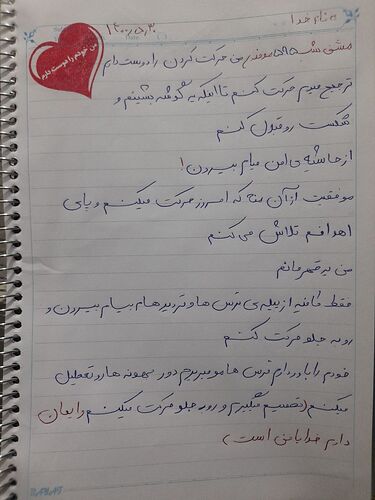 به نام خدا
۳۰ دی ۱۴۰۰
من خودم را دوست دارم
Date
مشق شب ۵۸۵ روفند / من حرکت کردن را دوست دارم
ترجیح میدم حرکت کنم تا اینکه یه گوشه بشینم و
شکست رو قبول کنم
از حاشیه ی امن میام بیرون!
موفقیت از آن منه که امروز حرکت میکنم و پای
اهدافم تلاش می کنم
من یه قهرمانم
فقط کافیه از پیله ی ترس ها و تردیدهام بیام بیرون و
رو به جلو حرکت کنم
خودم را باور دارم ترس هامو میریزم دور بهونه هارو تعطیل
میکنم (تصمیم میگیرم و رو به جلو حرکت میکنم و ایمان
دارم خدا با من است)